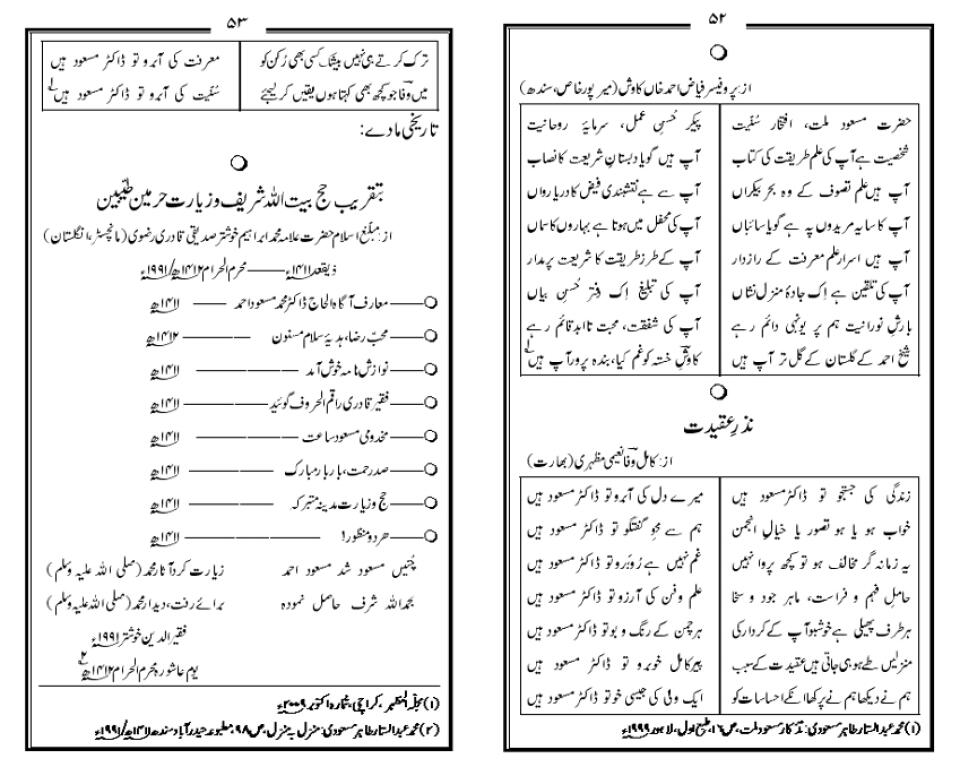 ۵۲
از: پروفیسر فیاض احمد خاں کاوش (میرپورخاص، سندھ)
حضرت مسعود ملت، افتخار سُنّیت پیکر حُسنِ عمل، سرمایۂ روحانیت
شخصیت ہے آپ کی علم طریقت کی کتاب آپ ہیں گویا دبستانِ شریعت کا نصاب
آپ ہیں علم تصوف کے وہ بحر بیکراں آپ سے ہے نقشبندی فیض کا دریا رواں
آپ کا سایہ مریدوں پہ ہے گویا سائباں آپ کی محفل میں ہوتا ہے بہاروں کا سماں
آپ ہیں اسرار علم معرفت کے رازدار آپ کے طرز طریقت کا شریعت پر مدار
آپ کی تلقین ہے اِک جادۂ منزل نشاں آپ کی تبلیغ اِک دفتر حُسنِ بیاں
بارشِ نورانیت ہم پر یونہی دائم رہے آپ کی شفقت، محبت تا ابد قائم رہے
شیخ احمد کے گلستان کے گل تر آپ ہیں کاوشِ خستہ کو غم کیا، بندہ پرور آپ ہیں ۱
نذرِ عقیدت
از: کامل وفا نعیمی مظہری (بھارت)
زندگی کی جستجو تو ڈاکٹر مسعود ہیں میرے دل کی آبرو تو ڈاکٹر مسعود ہیں
خواب ہو یا ہو تصور یا خیالِ انجمن ہم سے محوِ گفتگو تو ڈاکٹر مسعود ہیں
یہ زمانہ گر مخالف ہو تو کچھ پروا نہیں غم نہیں ہے رُوبرُو تو ڈاکٹر مسعود ہیں
حاملِ فہم و فراست، ماہر جود و سخا علم و فن کی آرزو تو ڈاکٹر مسعود ہیں
ہر طرف پھیلی ہے خوشبو آپ کے کردار کی ہر چمن کے رنگ و بو تو ڈاکٹر مسعود ہیں
منزلیں طے ہو ہی جاتی ہیں عقیدت کے سبب پیر کامل خوبرو تو ڈاکٹر مسعود ہیں
ہم نے دیکھا ہم نے پرکھا انکے احساسات کو ایک ولی کی جیسی خو تو ڈاکٹر مسعود ہیں
(۱) محمد عبدالستار طاہر مسعودی: تذکار مسعود ملت، ص ۱۶، طبع اول، لاہور ۱۹۹۹ء
۵۳
ترک کرتے ہی نہیں بیشک کسی بھی رُکن کو معرفت کی آبرو تو ڈاکٹر مسعود ہیں
میں وفا جو کچھ بھی کہتا ہوں یقیں کر لیجئے سُنّیت کی آبرو تو ڈاکٹر مسعود ہیں ۱
تاریخی مادے:
بتقریب حج بیت اللہ شریف و زیارت حرمین طیبین
از: مبلغ اسلام حضرت علامہ محمد ابراہیم خوشتر صدیقی قادری رضوی (مانچسٹر، انگلستان)
ذیقعد ۱۴۱۱ء —— محرم الحرام ۱۴۱۲ھ/۱۹۹۱ء
معارف آگاہ الحاج ڈاکٹر محمد مسعود احمد —— ۱۴۱۱ھ
محبّ رضا، ہدیۂ سلام مسنون —— ۱۴۱۲ھ
نوازش نامہ خوش آمد —— ۱۴۱۱ھ
فقیر قادری راقم الحروف گوئید —— ۱۴۱۱ھ
مخدومی مسعود ساعت —— ۱۴۱۱ھ
صد رحمت، بار بار مبارک —— ۱۴۱۱ھ
حج و زیارت مدینہ متبرکہ —— ۱۴۱۱ھ
ھر دو منظور! —— ۱۴۱۱ھ
چُنیں مسعود شد مسعود احمد زیارت کرد آثار محمد (صلی اللہ علیہ وسلم)
بحمداللہ شرف حاصل نمودہ برائے رفت، دیدار محمد (صلی اللہ علیہ وسلم)
فقیر الدین خوشتر ۱۹۹۱ء
یوم عاشورہ محرم الحرام ۱۴۱۲ھ ۲
(۱) مجلّہ المظہر، کراچی، شمارہ اکتوبر ۲۰۰۹ء
(۲) محمد عبدالستار طاہر مسعودی: منزل بہ منزل، ص ۹۸، مطبوعہ حیدرآباد سندھ ۱۴۱۱ھ/۱۹۹۱ء